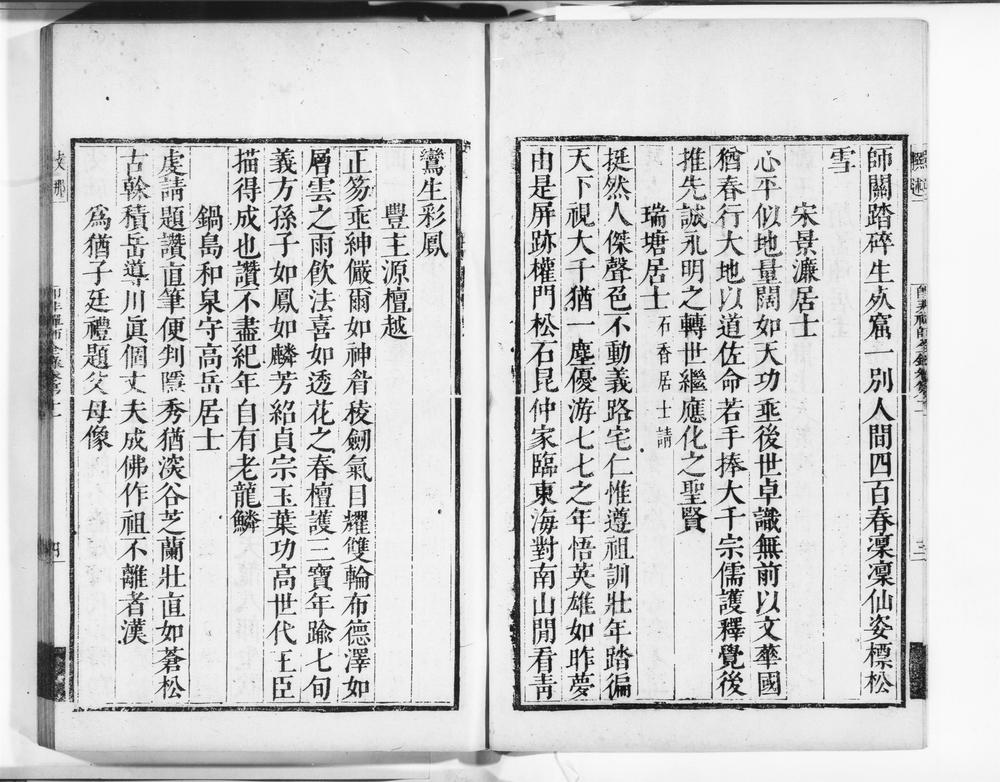 師關踏碎生死窟一別人間四百春凜凜仙姿標松
雪
宋景濂居士
心平似地量闊如天功乖後世卓識無前以文華國
猶春行大地以道佐命若手捧大千宗儒護釋覺後
推先誠永明之轉世繼應化之聖賢
瑞塘居士石香居士請
挺然人傑聲色不動義路宅仁惟遵祖訓壯年踏徧
天下視大千猶一塵優游七七之年悟英雄如昨夢
由是屏跡權門松石昆仲家臨東海對南山閒看青
鸞生彩鳳
豐主源檀越
正笏乖紳儼爾如神眥稜劒氣日耀雙輪布德澤如
層雲之雨飲法喜如透花之春檀護三寶年踰七旬
義方孫子如鳳如麟芳紹貞宗玉葉功高世代王臣
描得成也讚不盡紀年自有老龍鱗
鍋島和泉守高岳居士
虔請題讚直筆便判隱秀猶深谷芝蘭壯直如蒼松
古榦積岳導川眞個丈夫成佛作祖不離者漢
爲猶子廷禮題父母像
四